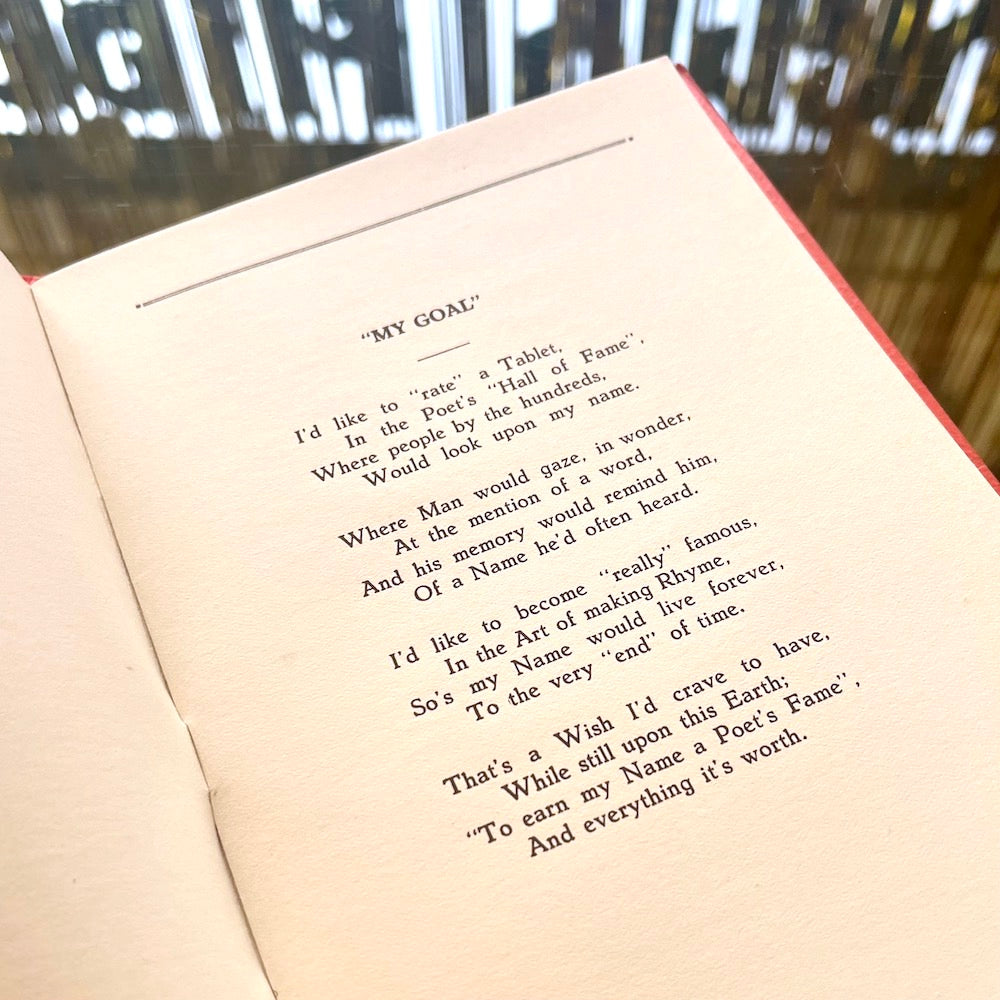 "MY GOAL"
I'd like to "rate" a Tablet,
In the Poet's "Hall of Fame",
Where people by the hundreds,
Would look upon my name.
Where Man would gaze, in wonder,
At the mention of a word,
And his memory would remind him,
Of a Name he'd often heard.
I'd like to become "really" famous,
In the Art of making Rhyme,
So's my Name would live forever,
To the very "end" of time.
That's a Wish I'd crave to have,
While still upon this Earth;
"To earn my Name a Poet's Fame",
And everything it's worth.